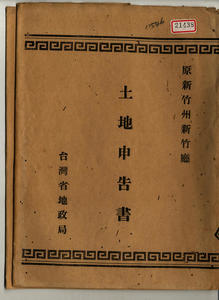 21438
原新竹州新竹廳
土地申告書
台灣省地政局